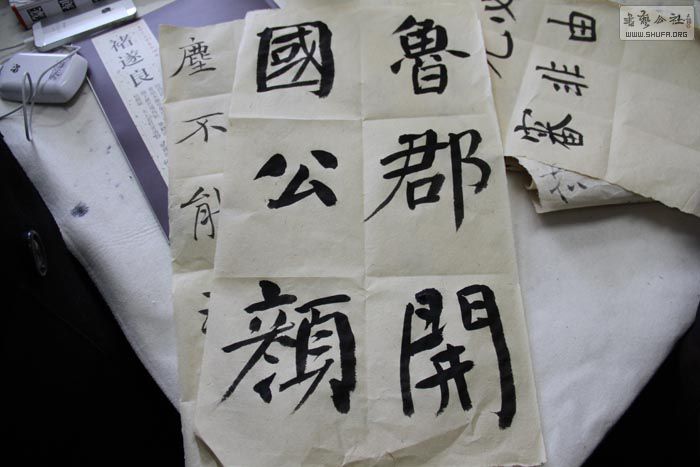 魯郡開
國公顏
塵不能
褚遂良
由非審
書藝公社
WWW.SHUFA.ORG